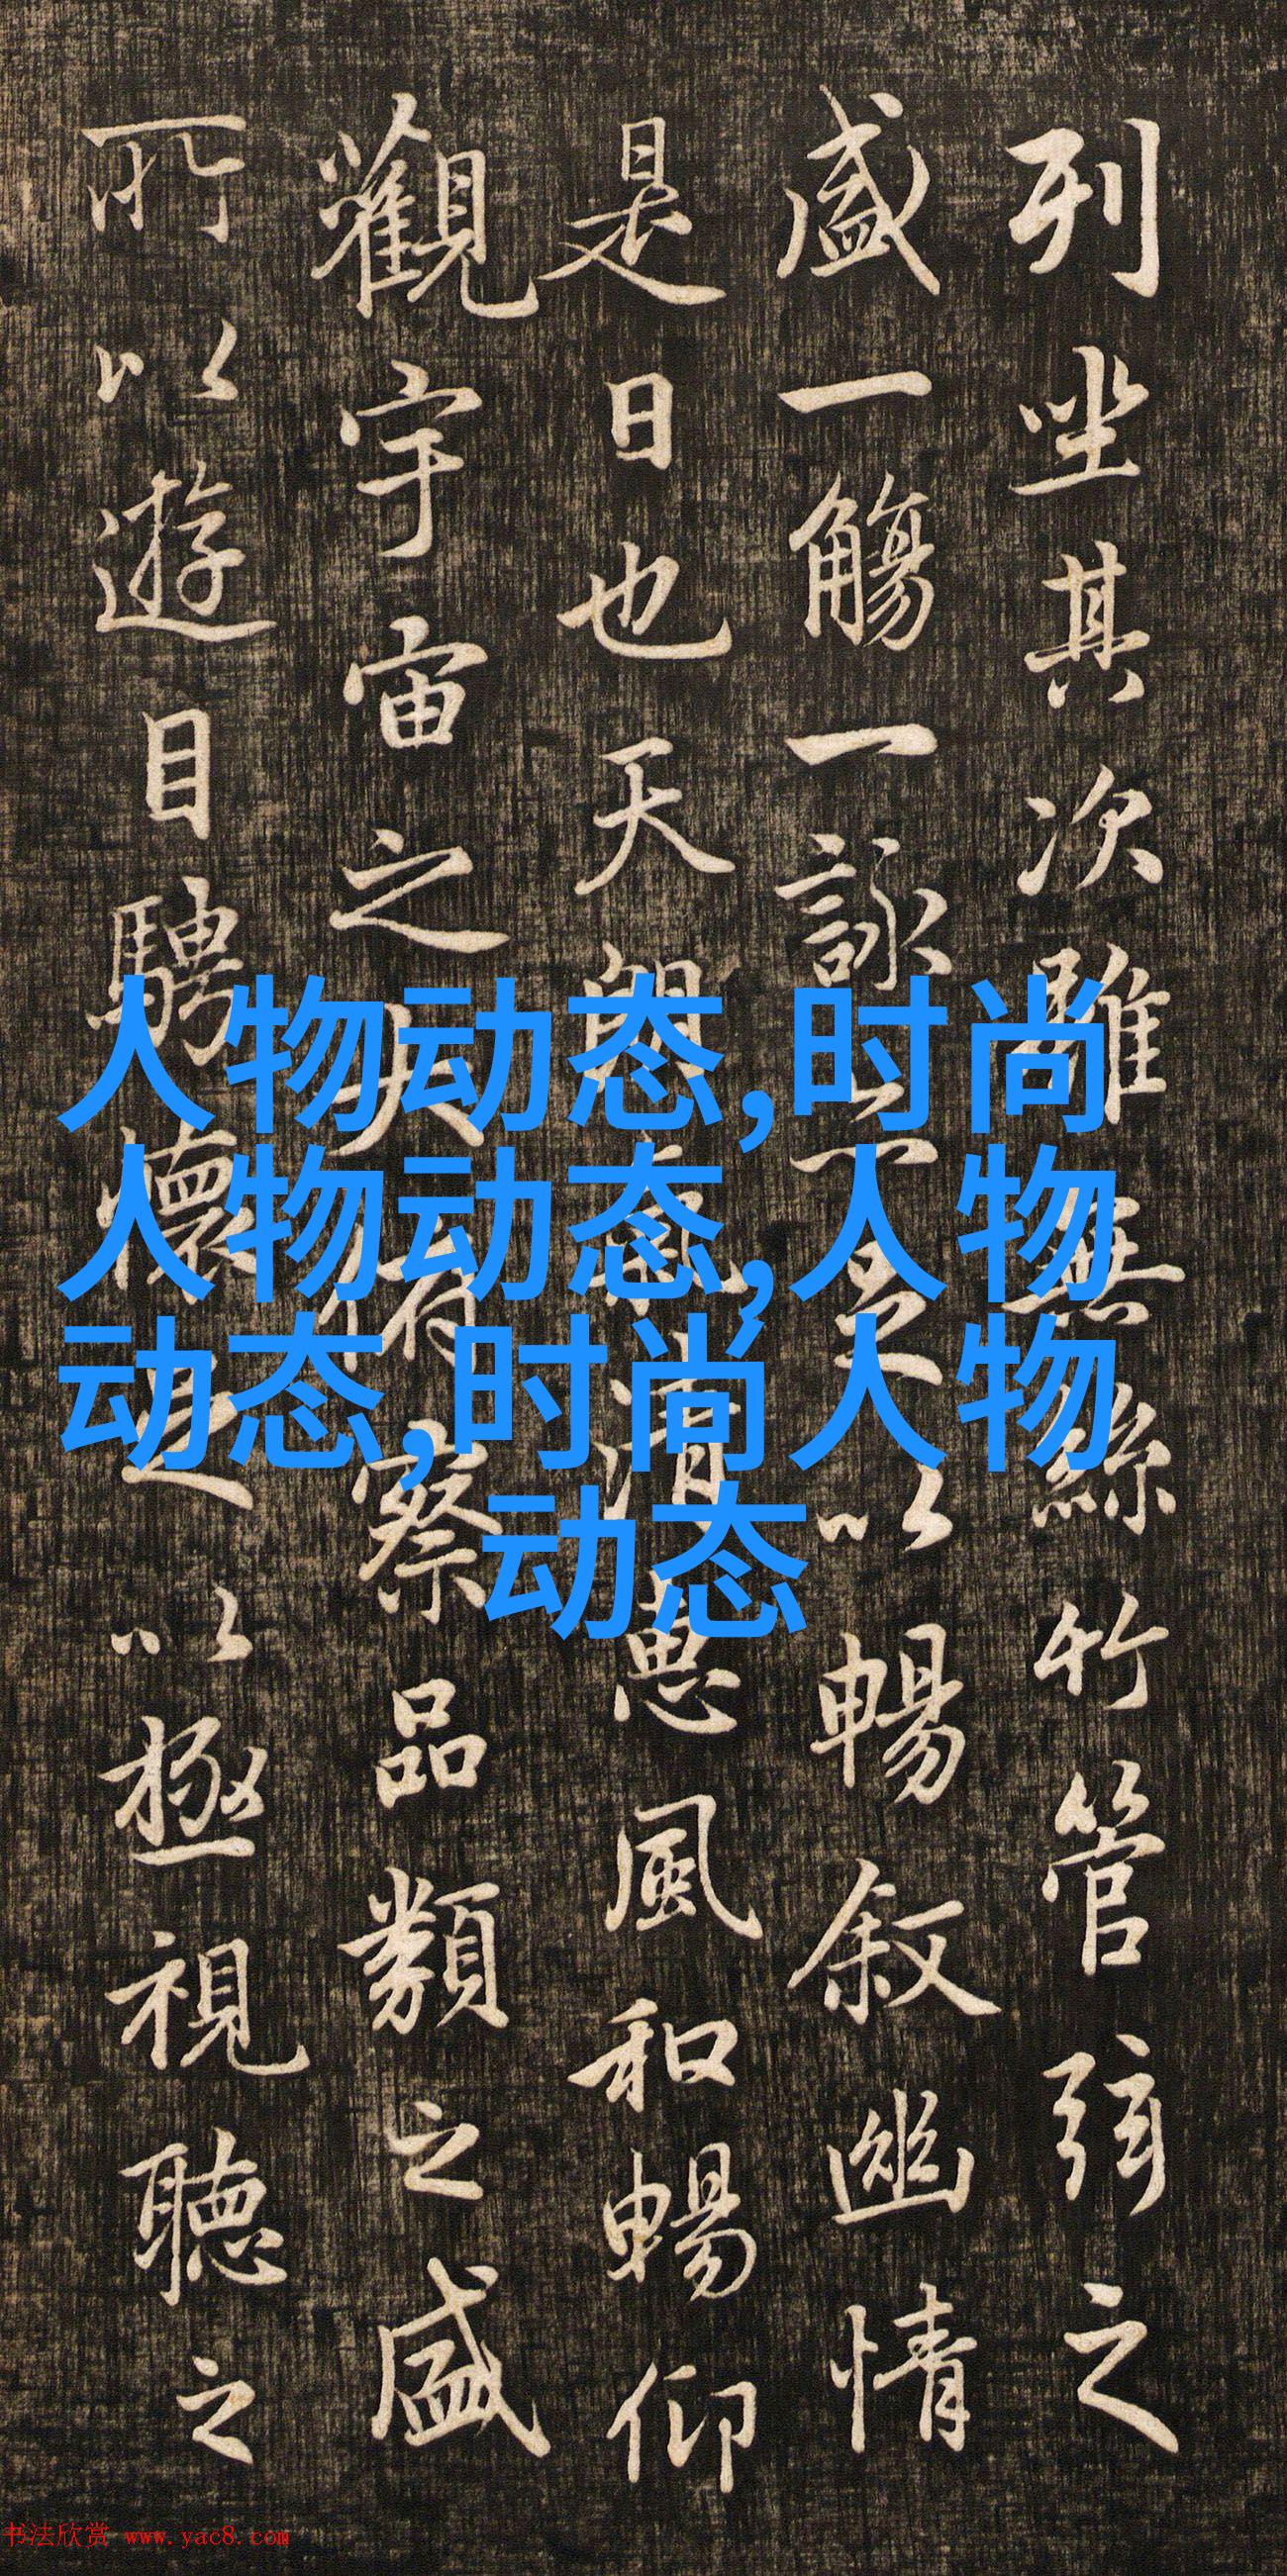 列坐其次雖無絲竹管弦之
盛一觴一詠亦足以暢叙幽情
是日也天朗氣清惠風和暢仰
觀宇宙之大俯察品類之盛
所以遊目騁懷足以極視聽之
人物动态,时尚
人物动态,人物
动态,时尚人物
动态
书法欣赏 www.yac8.com